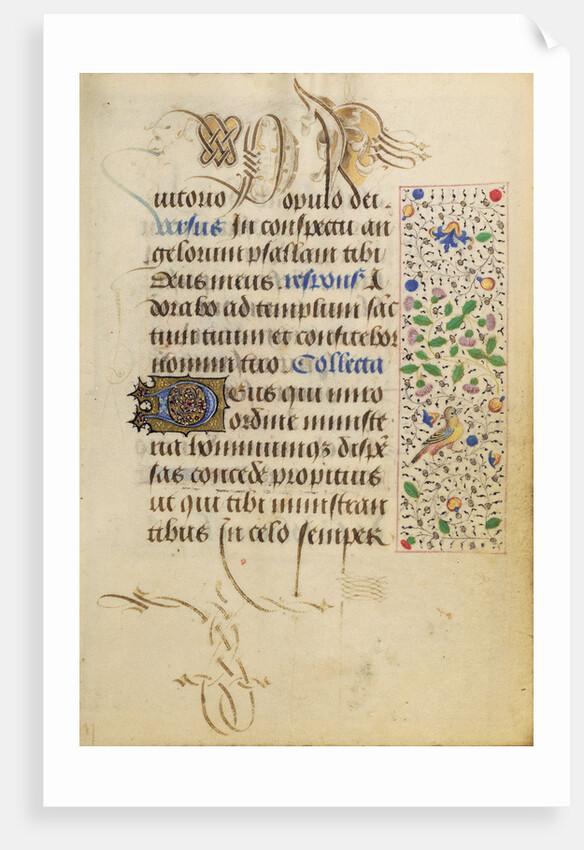 iutorio Populo dei.
versus In conspectu an
gelorum psallam tibi
Deus meus. respons' A
dorabo ad templum sāc
tum tuum et confitebor
nomini tuo Collecta
Deus qui miro
ordine ministe
ria hominumqꝫ dispē
sas concede propitius
ut qui tibi ministran
tibus In celo semper